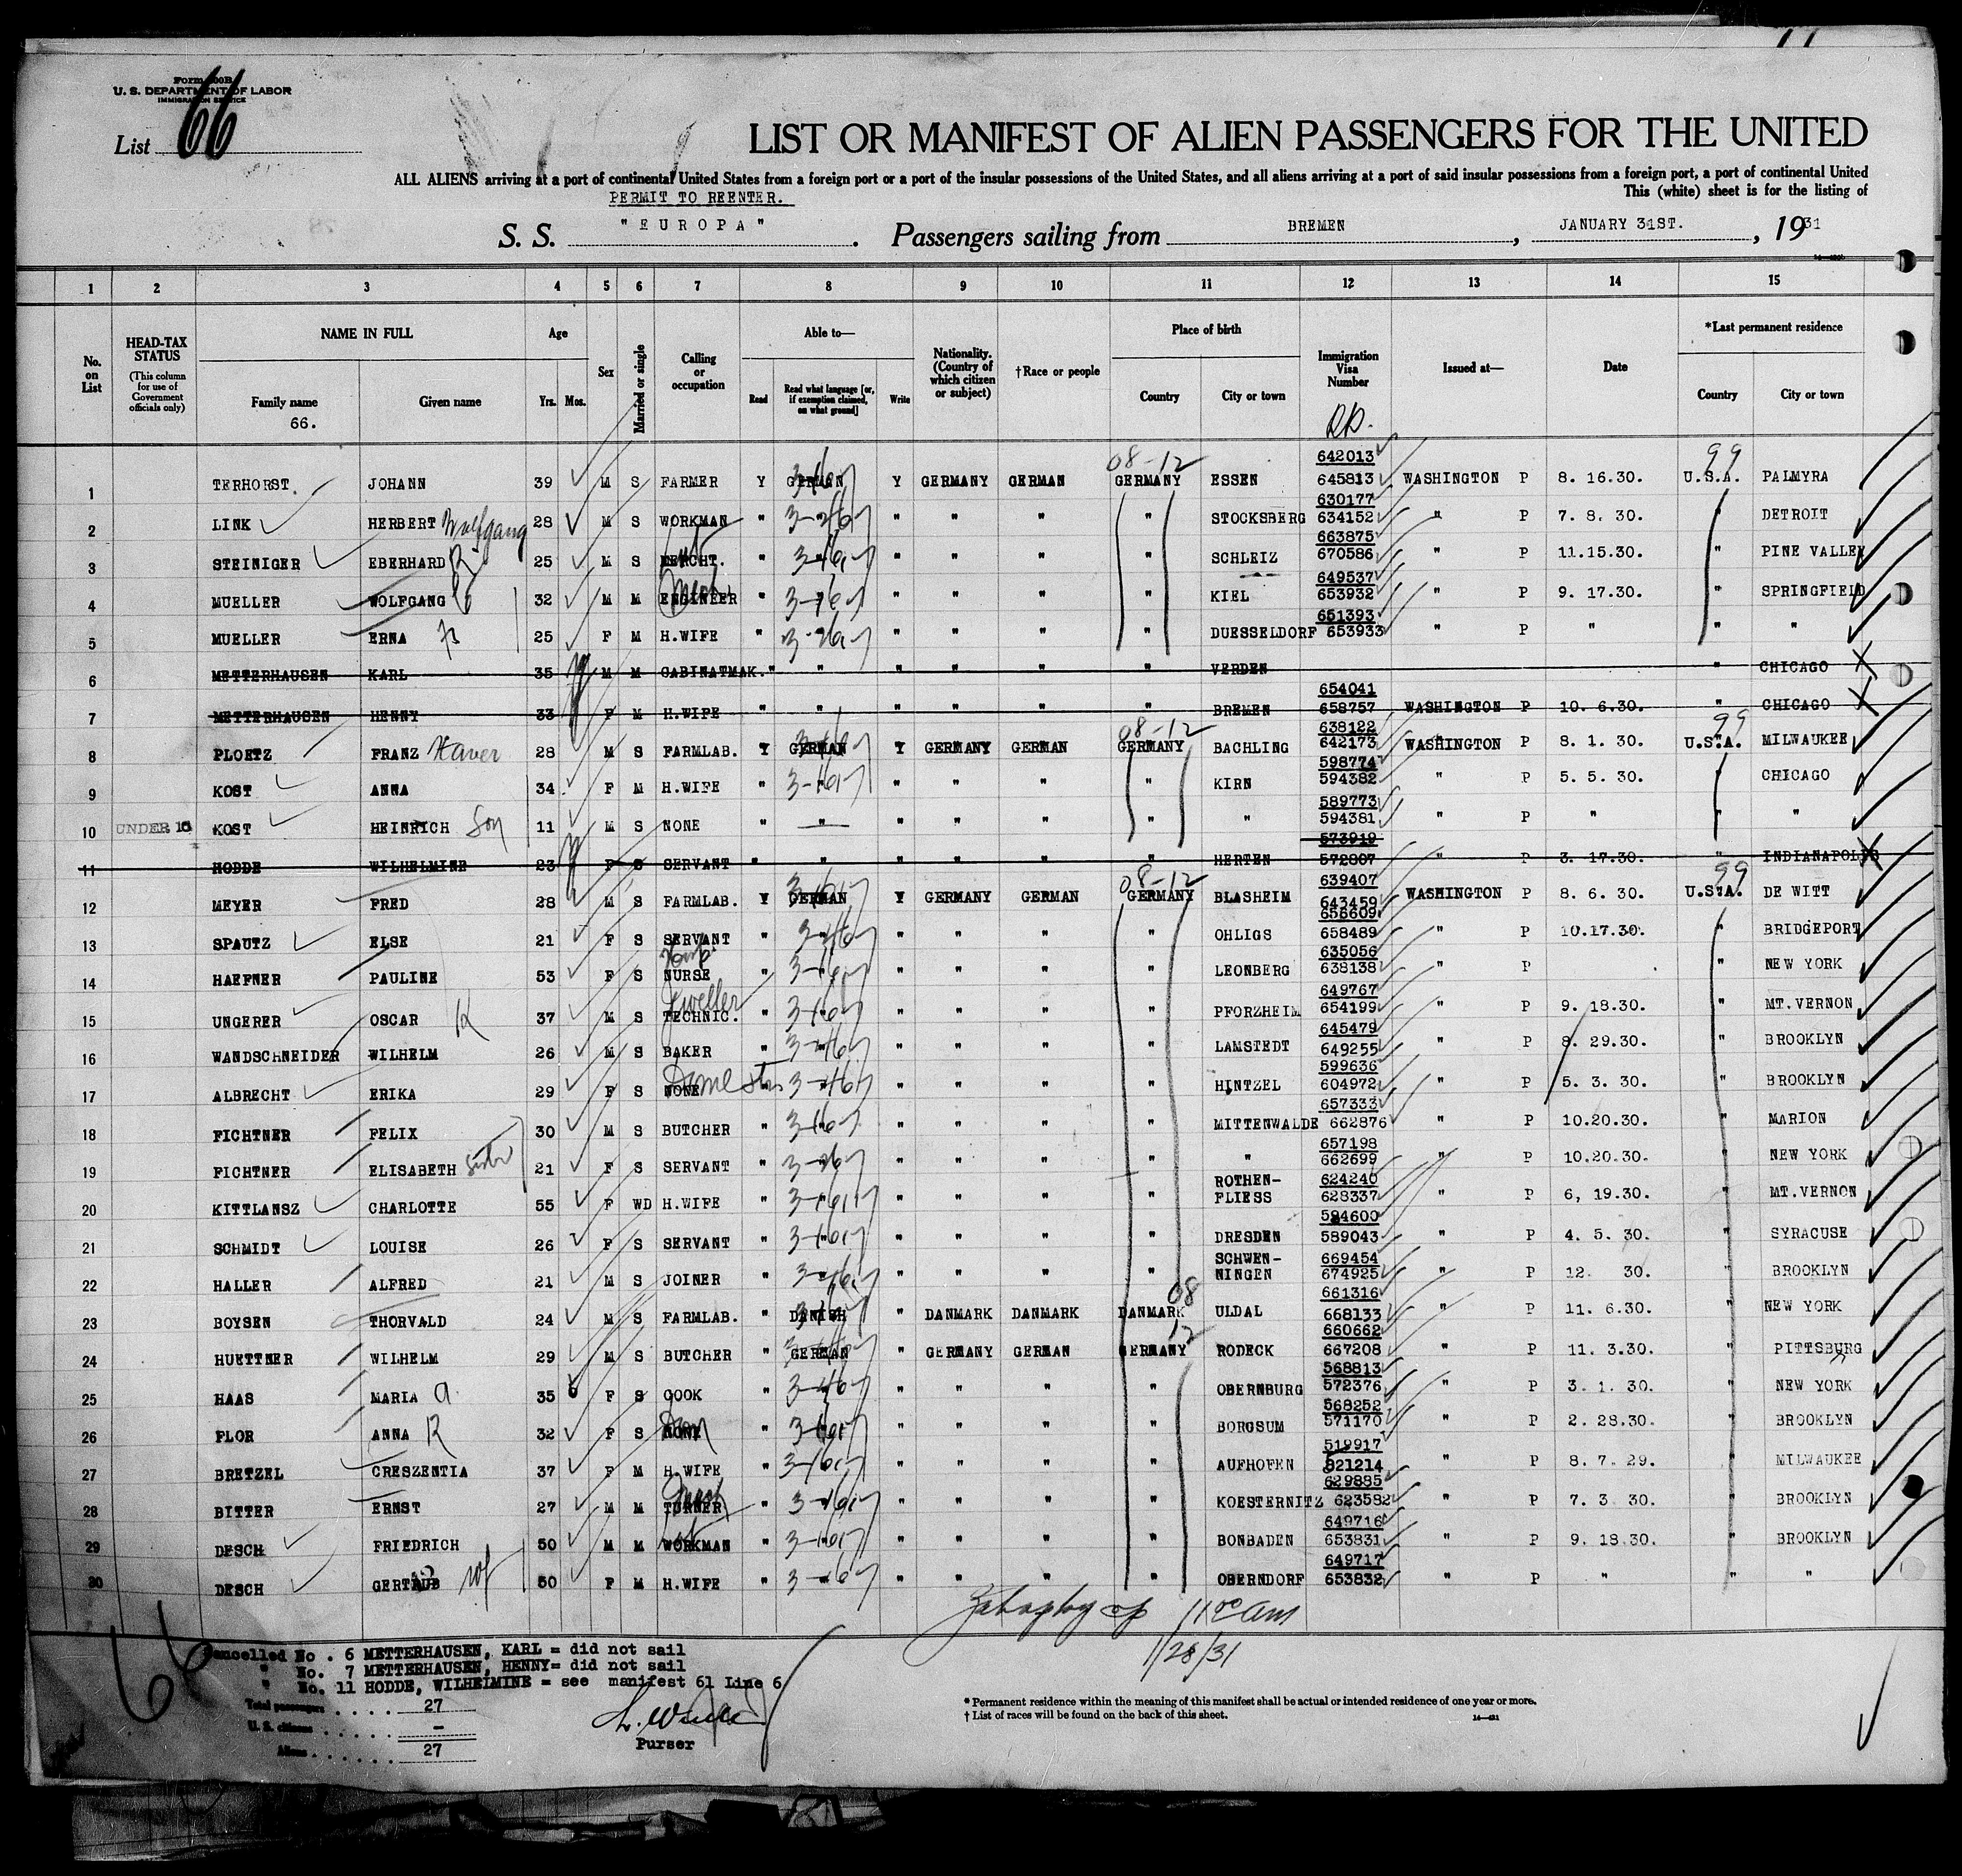 Form 500B
U. S. DEPARTMENT OF LABOR
IMMIGRATION SERVICE
List 66
LIST OR MANIFEST OF ALIEN PASSENGERS FOR THE UNITED
ALL ALIENS arriving at a port of continental United States from a foreign port or a port of the insular possessions of the United States, and all aliens arriving at a port of said insular possessions from a foreign port, a port of continental United
This (white) sheet is for the listing of
PERMIT TO REENTER.
S. S. "EUROPA". Passengers sailing from BREMEN, JANUARY 31ST., 1931
1 2 3 4 5 6 7 8 9 10 11 12 13 14 15
No. on List
HEAD-TAX STATUS (This column for use of Government officials only)
NAME IN FULL
Family name
66.
Given name
Age
Yrs. Mos.
Sex
Married or single
Calling or occupation
Able to—
Read
Read what language [or, if exemption claimed, on what ground]
Write
Nationality. (Country of which citizen or subject)
†Race or people
Place of birth
Country
City or town
Immigration Visa Number
Issued at—
Date
*Last permanent residence
Country
City or town
1 TERHORST. JOHANN 39 M S FARMER Y GERMAN Y GERMANY GERMAN 08-12 GERMANY ESSEN 642013 645813 WASHINGTON P 8. 16.30. 99 U.S.A. PALMYRA
2 LINK HERBERT Wolfgang 28 M S WORKMAN " " " " " " STOCKSBERG 630177 634152 " P 7. 8. 30. " DETROIT
3 STEINIGER EBERHARD 25 M S MERCHT. " " " " " " SCHLEIZ 663875 670586 " P 11.15.30. " PINE VALLEY
4 MUELLER WOLFGANG 32 M M ENGINEER " " " " " " KIEL 649537 653932 " P 9. 17.30. " SPRINGFIELD
5 MUELLER ERNA 25 F M H.WIFE " " " " " " DUESSELDORF 651393 653933 " P " " "
6 METTERHAUSEN KARL 35 M M CABINATMAK. " " " " " " VERDEN " CHICAGO
7 METTERHAUSEN HENNY 33 F M H.WIFE " " " " " " BREMEN 654041 658757 WASHINGTON P 10. 6.30. " CHICAGO
8 PLOETZ FRANZ Xaver 28 M S FARMLAB. Y GERMAN Y GERMANY GERMAN 08-12 GERMANY BACHLING 638122 642173 WASHINGTON P 8. 1. 30. 99 U.S.A. MILWAUKEE
9 KOST ANNA 34 F M H.WIFE " " " " " KIRN 598774 594382 " P 5. 5. 30. " CHICAGO
10 UNDER 16 KOST HEINRICH Son 11 M S NONE " " " " " " " 589773 594381 " P " " "
11 HODDE WILHELMINE 23 F S SERVANT " " " " " " HERTEN 573919 572807 " P 3. 17.30. " INDIANAPOLIS
12 MEYER FRED 28 M S FARMLAB. Y GERMAN Y GERMANY GERMAN 08-12 GERMANY BLASHEIM 639407 643459 WASHINGTON P 8. 6. 30. 99 U.S.A. DE WITT
13 SPAUTZ ELSE 21 F S SERVANT " " " " " " OHLIGS 656609 658489 " P 10.17.30. " BRIDGEPORT
14 HAEFNER PAULINE 53 F S NURSE " " " " " " LEONBERG 635056 638138 " P " NEW YORK
15 UNGERER OSCAR 37 M S TECHNIC. Jweller " " " " " " PFORZHEIM 649767 654199 " P 9. 18.30. " MT.VERNON
16 WANDSCHNEIDER WILHELM 26 M S BAKER " " " " " " LAMSTEDT 645479 649255 " P 8. 29.30. " BROOKLYN
17 ALBRECHT ERIKA 29 F S NONE " " " " " HINTZEL 599636 604972 " P 5. 3. 30. " BROOKLYN
18 FICHTNER FELIX 30 M S BUTCHER " " " " " " MITTENWALDE 657333 662876 " P 10.20.30. " MARION
19 FICHTNER ELISABETH Sister 21 F S SERVANT " " " " " " " 657198 662699 " P 10.20.30. " NEW YORK
20 KITTLANSZ CHARLOTTE 55 F WD H.WIFE " " " " " " ROTHEN-FLIESS 624240 628337 " P 6, 19.30. " MT.VERNON
21 SCHMIDT LOUISE 26 F S SERVANT " " " " " " DRESDEN 594600 589043 " P 4. 5. 30. " SYRACUSE
22 HALLER ALFRED 21 M S JOINER " " " " " " SCHWEN-NINGEN 669454 674925 " P 12. 30. " BROOKLYN
23 BOYSEN THORVALD 24 M S FARMLAB. " DANISH " DANMARK DANMARK DANMARK 08 ULDAL 661316 668133 " P 11. 6.30. " NEW YORK
24 HUETTNER WILHELM 29 M S BUTCHER " GERMAN " GERMANY GERMAN GERMANY 12 RODECK 660662 667208 " P 11. 3.30. " PITTSBURG
25 HAAS MARIA a. 35 F S COOK " " " " " " OBERNBURG 568813 572376 " P 3. 1. 30. " NEW YORK
26 FLOR ANNA R 32 F S NONE " " " " " " BORGSUM 568252 571170 " P 2. 28.30. " BROOKLYN
27 BRETZEL CRESZENTIA 37 F M H.WIFE " " " " " " AUFHOFEN 519917 521214 " P 8. 7. 29. " MILWAUKEE
28 BITTER ERNST 27 M M TURNER " " " " " " KOESTERNITZ 629885 623582 " P 7. 3 30. " BROOKLYN
29 DESCH FRIEDRICH 50 M M WORKMAN " " " " " " BONBADEN 649716 653831 " P 9. 18.30. " BROOKLYN
30 DESCH wf 50 F M H.WIFE " " " " " " OBERNDORF 649717 653832 " P " " "
11 am
1/28/31
66
Cancelled No . 6 METTERHAUSEN, KARL = did not sail
" No. 7 METTERHAUSEN, HENNY= did not sail
" No. 11 HODDE, WILHELMINE = see manifest 61 Line 6
Total passengers . . . . 27
U. S. citizens . . . . . –
Aliens . . . . . . 27
Purser
* Permanent residence within the meaning of this manifest shall be actual or intended residence of one year or more.
† List of races will be found on the back of this sheet.